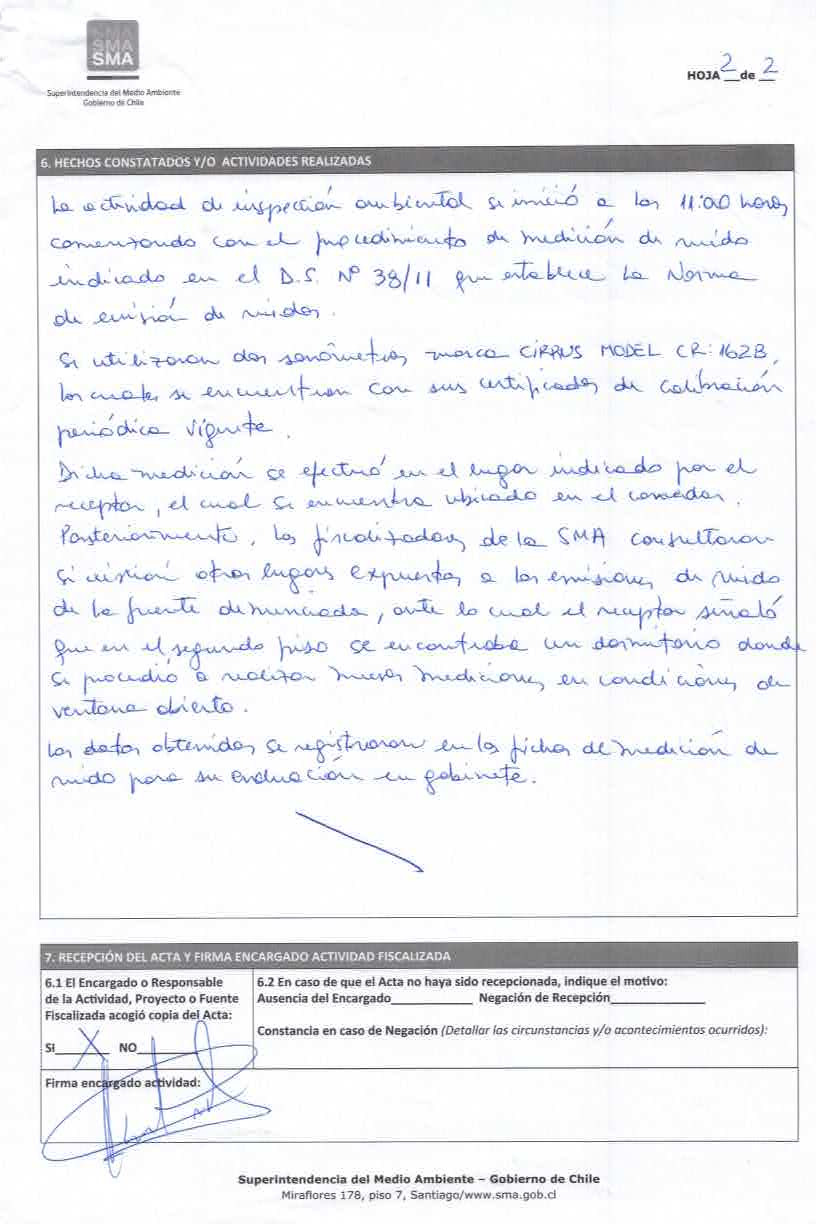 SMA
SMA
SMA
Superintendencia del Medio Ambiente
Gobierno de Chile
HOJA 2 de 2
6. HECHOS CONSTATADOS Y/O ACTIVIDADES REALIZADAS
La actividad de inspección ambiental se inició a las 11:00 horas
comenzando con el procedimiento de medición de ruido
indicado en el D.S. Nº 38/11 que establece la Norma
de emisión de ruidos.
Se utilizaron dos sonómetros marca CIRRUS MODEL CR:162B,
los cuales se encuentran con sus certificados de calibración
periódica vigente.
Dicha medición se efectuó en el lugar indicado por el
receptor, el cual se encuentra ubicado en el comedor.
Posteriormente, los fiscalizadores de la SMA consultaron
si existían otros lugares expuestos a las emisiones de ruido
de la fuente denunciada, ante lo cual el receptor señaló
que en el segundo piso se encontraba un dormitorio donde
se procedió a realizar nuevas mediciones en condiciones de
ventana abierta.
Los datos obtenidos se registraron en las fichas de medición de
ruido para su evaluación en gabinete.
7. RECEPCIÓN DEL ACTA Y FIRMA ENCARGADO ACTIVIDAD FISCALIZADA
6.1 El Encargado o Responsable
de la Actividad, Proyecto o Fuente
Fiscalizada acogió copia del Acta:
SI X NO
6.2 En caso de que el Acta no haya sido recepcionada, indique el motivo:
Ausencia del Encargado____________ Negación de Recepción______________
Constancia en caso de Negación (Detallar las circunstancias y/o acontecimientos ocurridos):
Firma encargado actividad:
Superintendencia del Medio Ambiente – Gobierno de Chile
Miraflores 178, piso 7, Santiago/www.sma.gob.cl